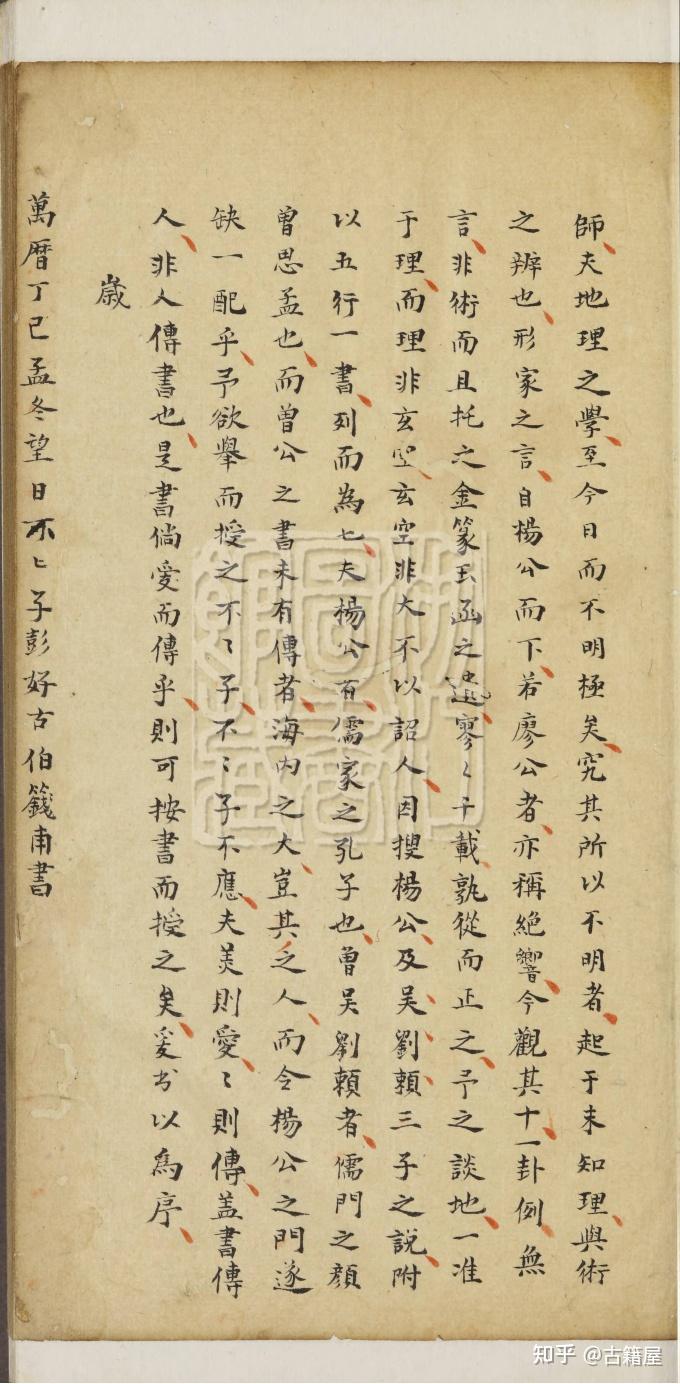 師夫地理之學至今日而不明極矣究其所以不明者起于未知理與術
之辨也形家之言自楊公而下若廖公者亦稱絕響今觀其十一卦例無
言非術而且托之金篆玉函之遺寥〻千載孰從而正之予之談地一准
于理而理非玄空玄空非大不以詔人因搜楊公及吴劉賴三子之說附
以五行一書列而為七夫楊公有儒家之孔子也曾吴劉賴者儒門之顏
曾思孟也而曾公之書未有傳者海內之大豈其乏人而令楊公之門遂
缺一配乎予欲舉而授之不〻子不〻子不應夫美則愛〻則傳盖書傳
人非人傳書也是書倘愛而傳乎則可按書而授之矣爰书以為序
歲
萬曆丁巳孟冬望日不〻子彭好古伯籛甫書
知乎 @古籍屋